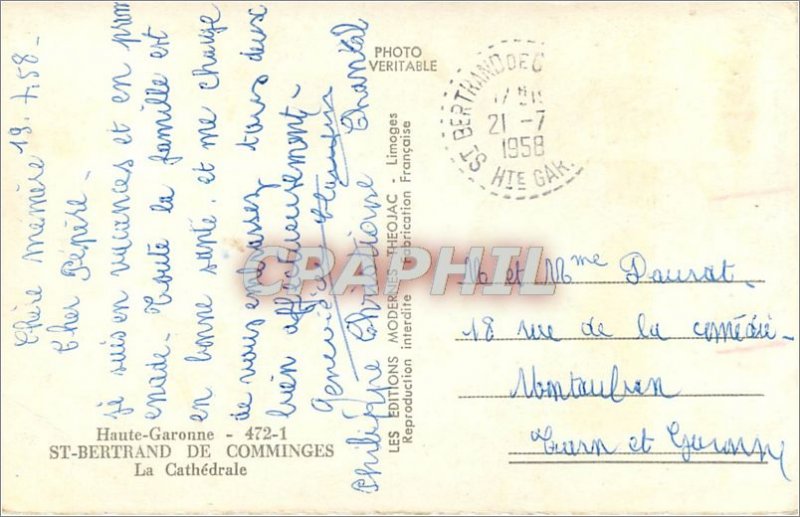 19.7.58-
Chère mémère
Cher Pépère.
je suis en vacances et en prom
enade. Toute la famille est
en bonne santé. et me charge
de vous embrassez tous deux
bien affectueusement.
Geneviève
Philippe Christiane Chantal
Haute-Garonne - 472-1
ST-BERTRAND DE COMMINGES
La Cathédrale
PHOTO
VERITABLE
LES EDITIONS MODERNES THEOJAC - Limoges
Reproduction interdite Fabrication Française
ST BERTRAND DE C
21 -7
1958
HTE GAR.
M et Mme Daurat.
18 rue de la comédie-
Montauban
Tarn et Garonne
CPAPHIL